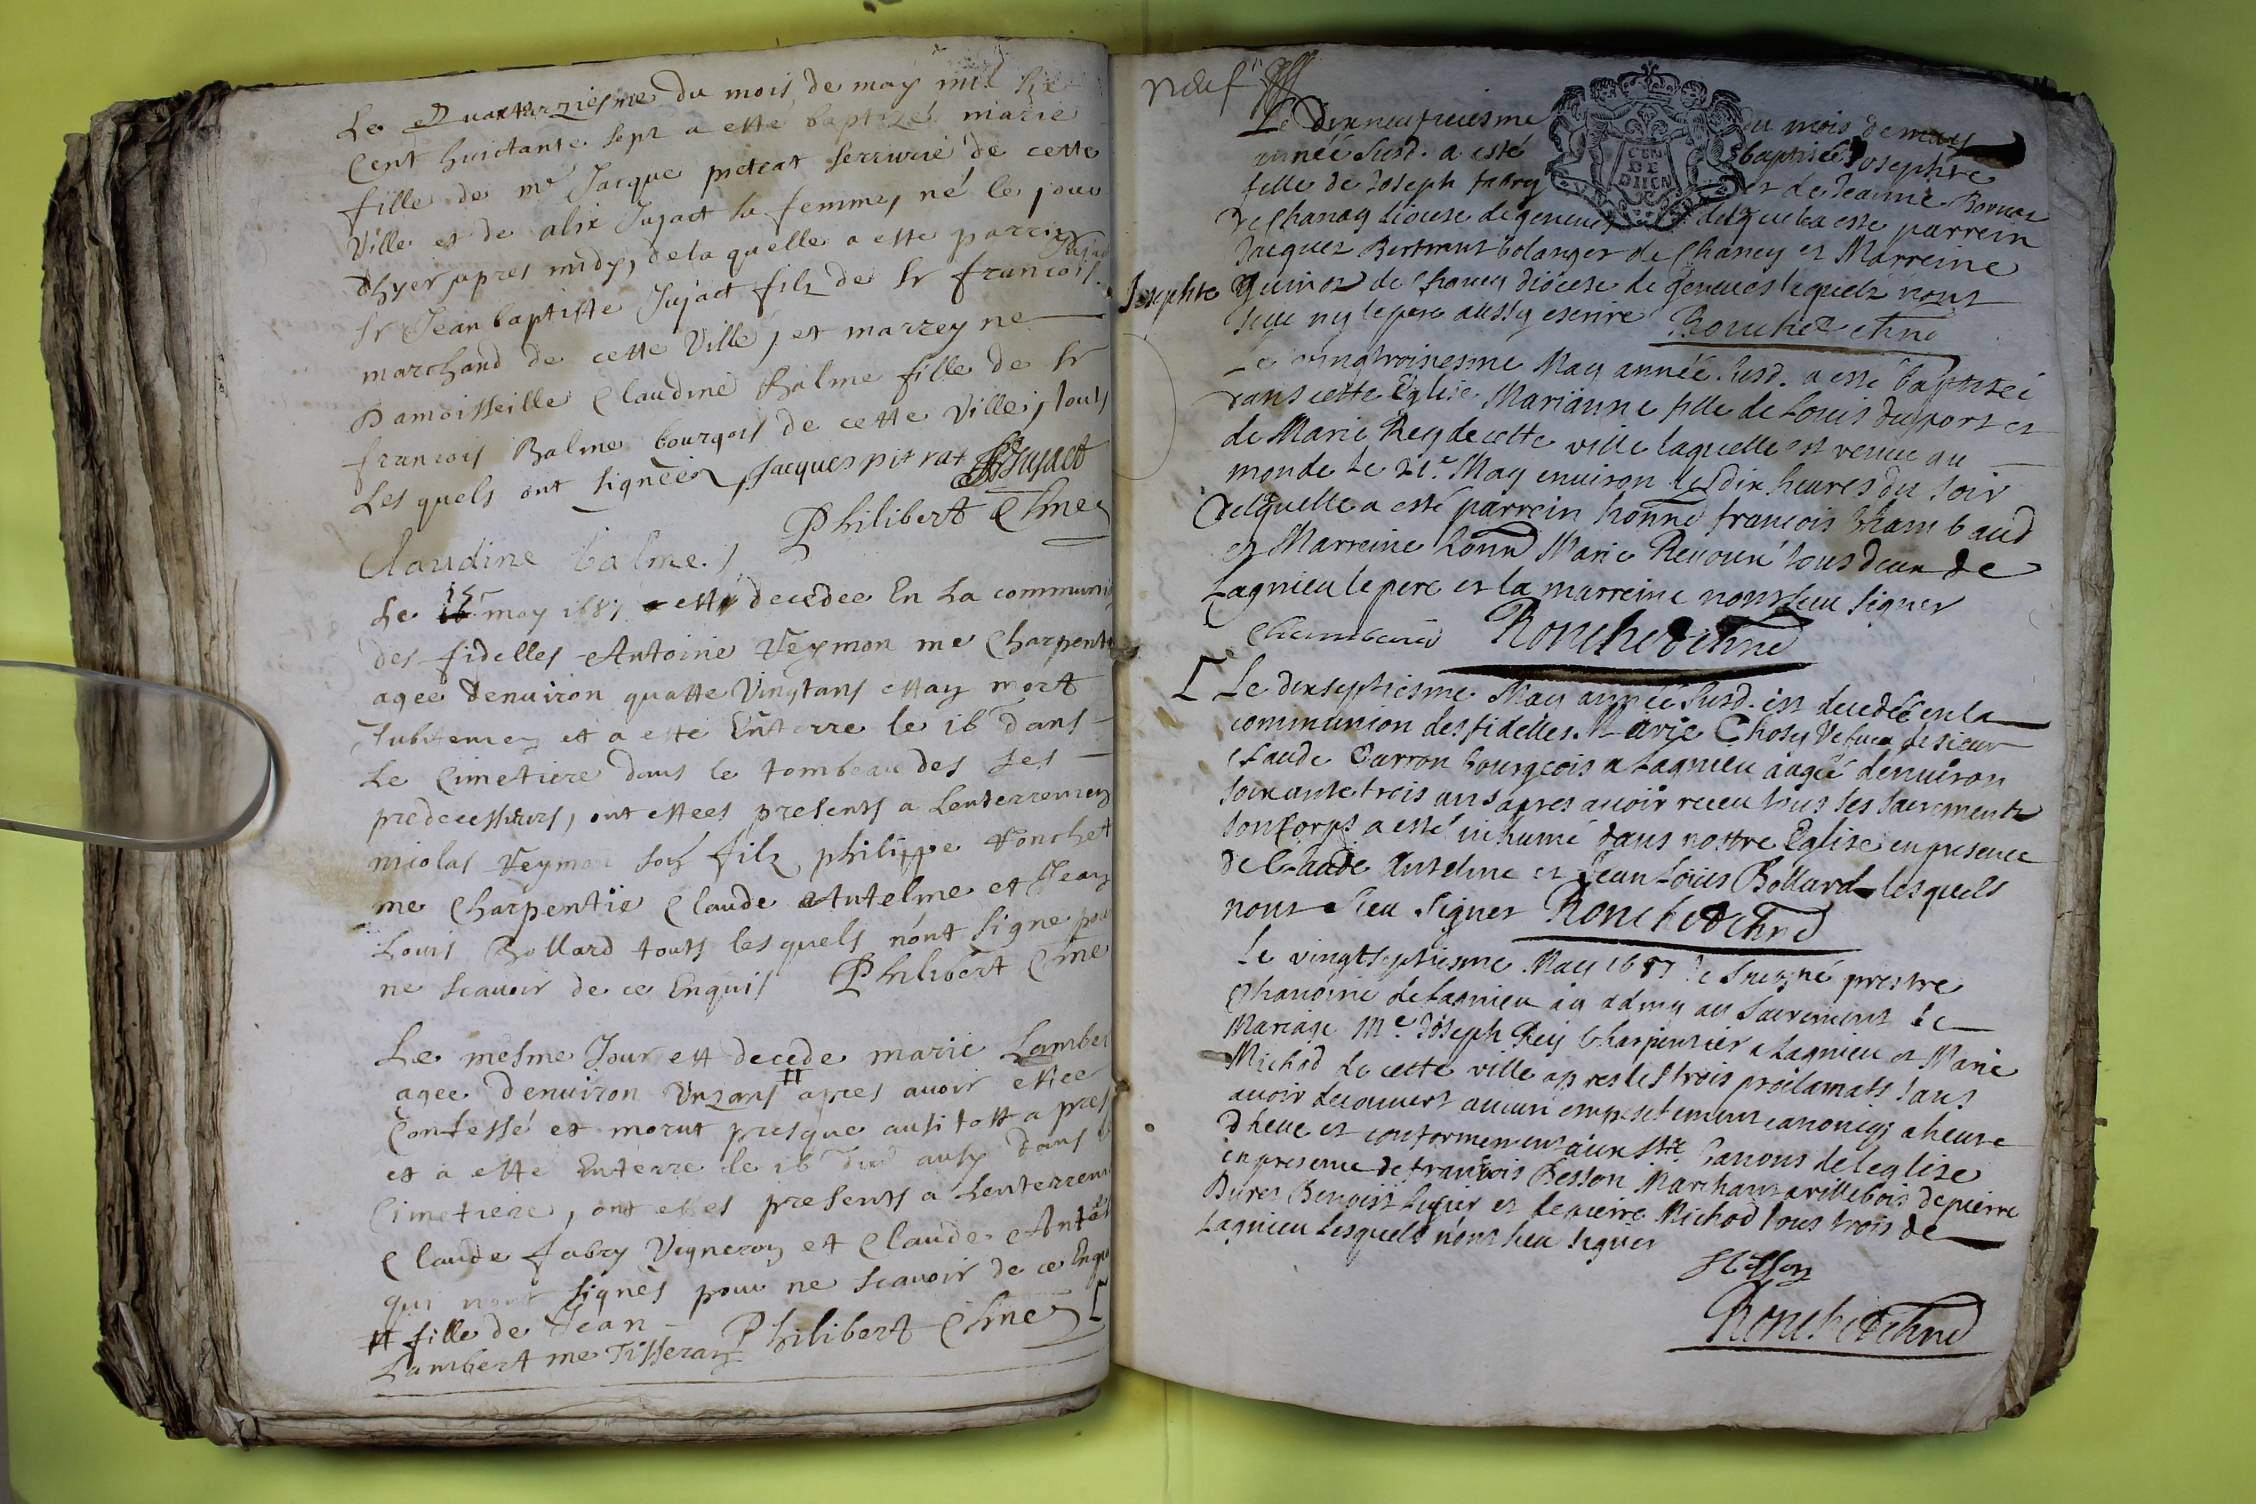 Le Quatorziesme du mois de may mil six
Cent huictante sept a esté baptizé marie
fille de me Jacque pitrat serrurié de cette
Ville et de alix Jujact sa femme, né le jour
dhyer apres midy, de la quelle a esté parrin
Sr Jean baptiste Jujact filz de Sr francois Jujact
marchand de cette Ville, et marreyne
Damoisseille Claudine Balme fille de Sr
francois Balme bourgois de cette Ville, touts
Les quels ont signéez, Jacques pitrat Jujact
Philibert Chne
Claudine balme
Le 15 may 1687 esté decedee En La communi
des fidelles Antoine Veymon me Charpenti
agee denuiron quatte Vingtans estay mort
subitemen et a esté Enterre le 16 dans
Le Cimetiere dans le tombeau des ses
predecessurs, ont estees presents a Lenterremen
nicolas Veymon son filz philippe Ponchet
me Charpentié Claude Antelme et Jean
Louis Bollard touts lesquels nont signe pour
ne scavoir de ce Enquis Philibert Chne
Le mesme Jour est decede marie Lamber
agee denuiron Unzans apres avoir estee
Confessé et morut presque ausi tost apres
et a esté Enterre le 16 dud ausy dans
Cimetiere, ont estes presents a Lenterrem
Claude fabry Vigneron et Claude Antel
qui nont signés pour ne scavoir de ce Enqui
# fille de Jean
Lambert me Tisseran Philibert Chne
neuf
Le dixneufviesme du mois de may
année susd. a esté baptisée Josephte
fille de Joseph fabry et de Jeanne Bornat
de Chanay diocese de geneve delquelle a esté parrein
Jacques Bertrant bolanger de Chaney et Marreine
Josephte Guinoz de Chaney diocese de geneves lequelz nont
sceu ny le pere aussy escrire Ronchet chne
Le vingtroisiesme May année susd. a esté baptisée
dans cette Eglise Marianne fille de Louis duport et
de Marie Rey de cette ville laquelle est venue au
monde le 21e May environ les dix heures du soir
delquelle a esté parrein honné francois Chambaud
et Marreine honne Marie Revoux tous deux de
Lagnieu le pere et la marreine nont sceu signer
Chambaud Ronchet chne
Le dixseptiesme May année susd. est decedée en la
communion des fidelles Marie Chosy Vefue de sieur
Claude Carron bourgeois a Lagnieu aagée denviron
soixante trois ans apres avoir receu tous ses sacrements
son Corps a esté inhumé dans nostre Eglise en presence
de Claude Antelme et Jean Louis Bollard lesquels
nont sceu signer Ronchet chne
Le vingtseptiesme May 1687 Je soussigné prestre
Chanoine de Lagnieu ay admy au Sacrement de
Mariage Me Joseph Rey Charpentier a Lagnieu et Marie
Michod de cette ville apres les trois proclamats sans
avoir decouvert aucun empeschement canoniq; a heure
dheue et conformement aux Stz Canons de leglise
en presence de francois Besson Marchant a villebois de pierre
Buret Benoist et de pierre Michod tous trois de
Lagnieu Lesquels nont sceu signer
Besson
Ronchet chne